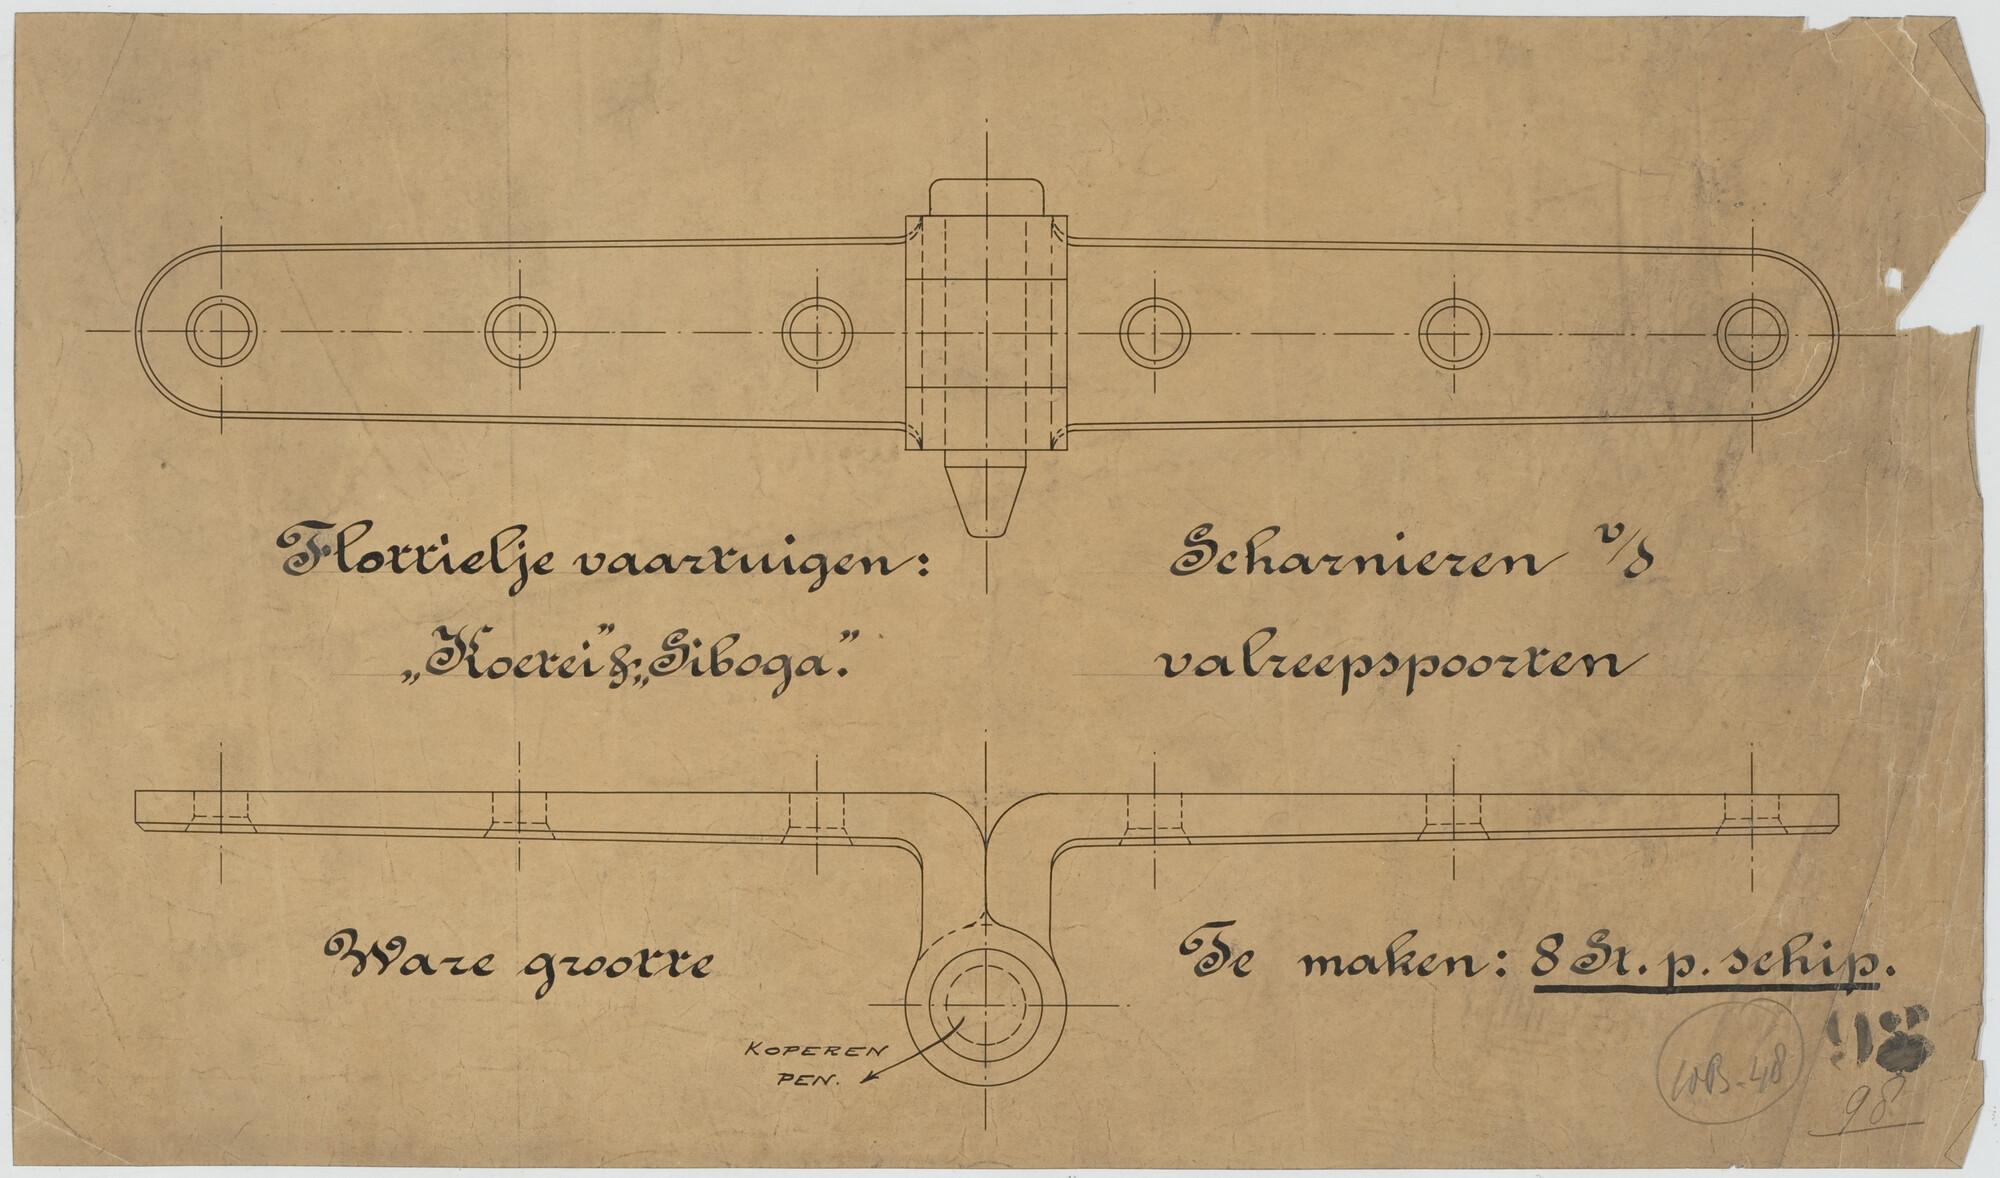 Flottielje vaartuigen:
„Koetei" & „Siboga".
Scharnieren v/d
valreepspoorten
Ware grootte
Te maken: 8 St. p. schip.
KOPEREN
PEN.
WB-48
98
98